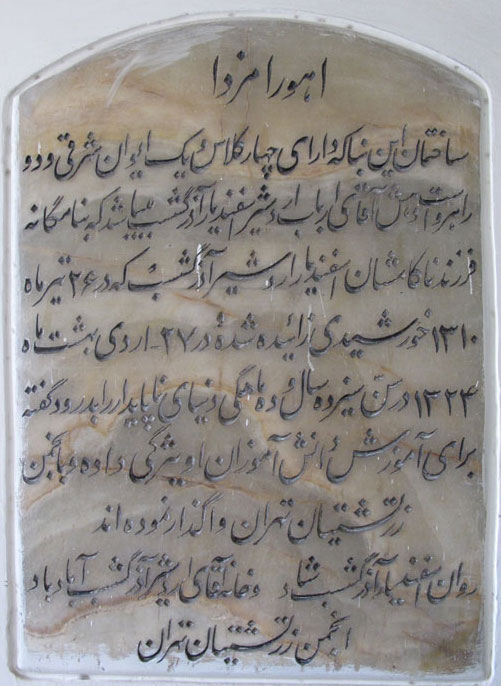 اهورا مزدا
ساختمان این بنا که دارای چهار کلاس و یک ایوان شرقی و دو
راهرو است دهش آقای ارباب اردشیر اسفندیار آذرگشب میباشد که بنامگانه
فرزند ناکامشان اسفندیار اردشیر آذرگشب که در ۲۶ تیر ماه
۱۳۱۰ خورشیدی زائیده شده و در ۲۷ - اردی بهشت ماه
۱۳۲۴ در سن سیزده سال و ده ماهگی دنیای ناپایدار را بدرود گفته
برای آموزش دانش آموزان او یژگی داده و بانجمن
زرتشتیان تهران واگذار نموده اند
روان اسفندیار آذرگشب شاد و خانه آقای اردشیر آذرگشب آباد باد
انجمن زرتشتیان تهران